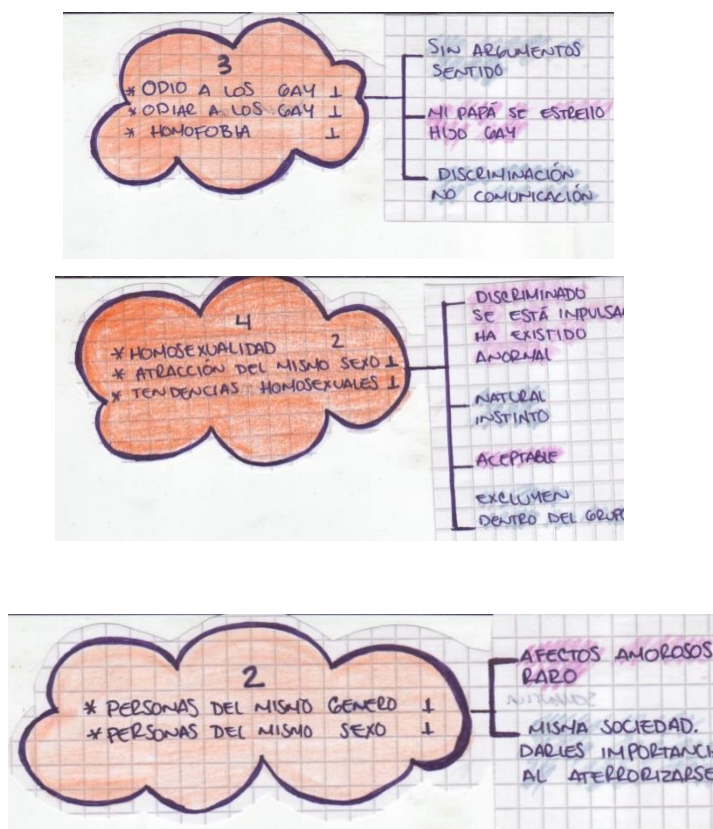 3
* ODIO A LOS GAY 1
* ODIAR A LOS GAY 1
* HOMOFOBIA 1
SIN ARGUMENTOS
SENTIDO
MI PAPÁ SE ESTRELLO
HIJO GAY
DISCRIMINACIÓN
NO COMUNICACIÓN
4
* HOMOSEXUALIDAD 2
* ATRACCIÓN DEL MISMO SEXO 1
* TENDENCIAS HOMOSEXUALES 1
DISCRIMINADO
SE ESTÁ IMPULSA
HA EXISTIDO
ANORMAL
NATURAL
INSTINTO
ACEPTABLE
EXCLUYEN
DENTRO DEL GRUPO
2
* PERSONAS DEL MISMO GENERO 1
* PERSONAS DEL MISMO SEXO 1
AFECTOS AMOROSOS
RARO
MISMA SOCIEDAD.
DARLES IMPORTANCI
AL ATERRORIZARSE